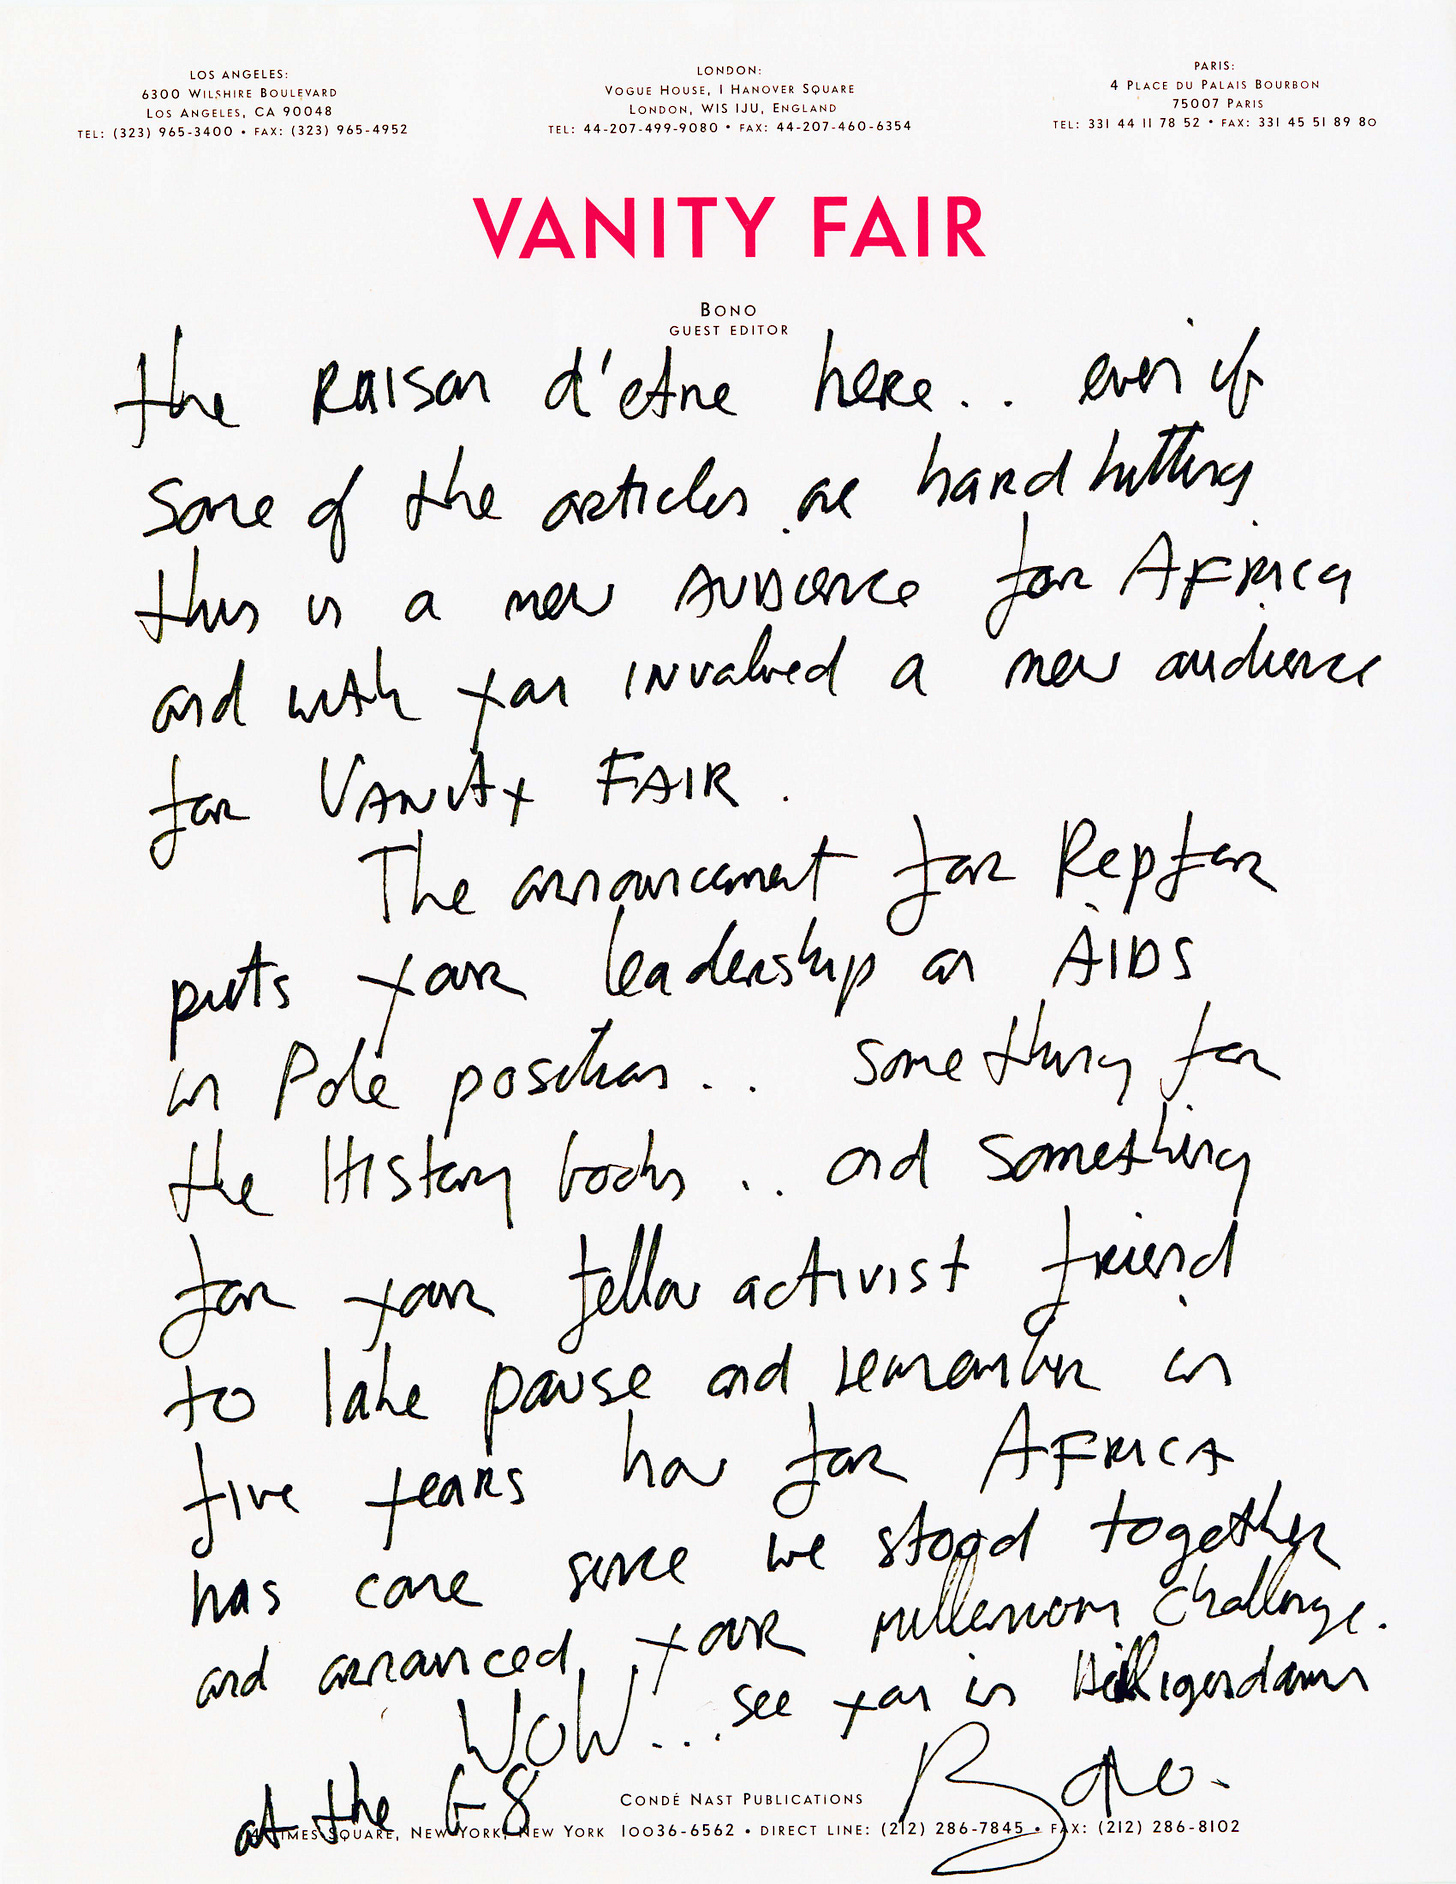 LOS ANGELES:
6300 WILSHIRE BOULEVARD
LOS ANGELES, CA 90048
TEL: (323) 965-3400 • FAX: (323) 965-4952
LONDON:
VOGUE HOUSE, 1 HANOVER SQUARE
LONDON, W1S 1JU, ENGLAND
TEL: 44-207-499-9080 • FAX: 44-207-460-6354
PARIS:
4 PLACE DU PALAIS BOURBON
75007 PARIS
TEL: 331 44 11 78 52 • FAX: 331 45 51 89 80
VANITY FAIR
BONO
GUEST EDITOR
the Raison d'etre here.. even if
some of the articles are hard hitting
this is a new AUDience for AFRICA
and with you INvolved a new audience
for VANITY FAIR.
The announcement for Repfar
puts your leadership on AIDS
in Pole position.. something for
the History books .. and something
for your fellow activist friend
to take pause and remember in
five years how far AFRICA
has come since we stood together
and announced your millennium challenge.
WOW... see you in Heiligendamm
at the G8 Bono.
CONDÉ NAST PUBLICATIONS
4 TIMES SQUARE, NEW YORK, NEW YORK 10036-6562 • DIRECT LINE: (212) 286-7845 • FAX: (212) 286-8102